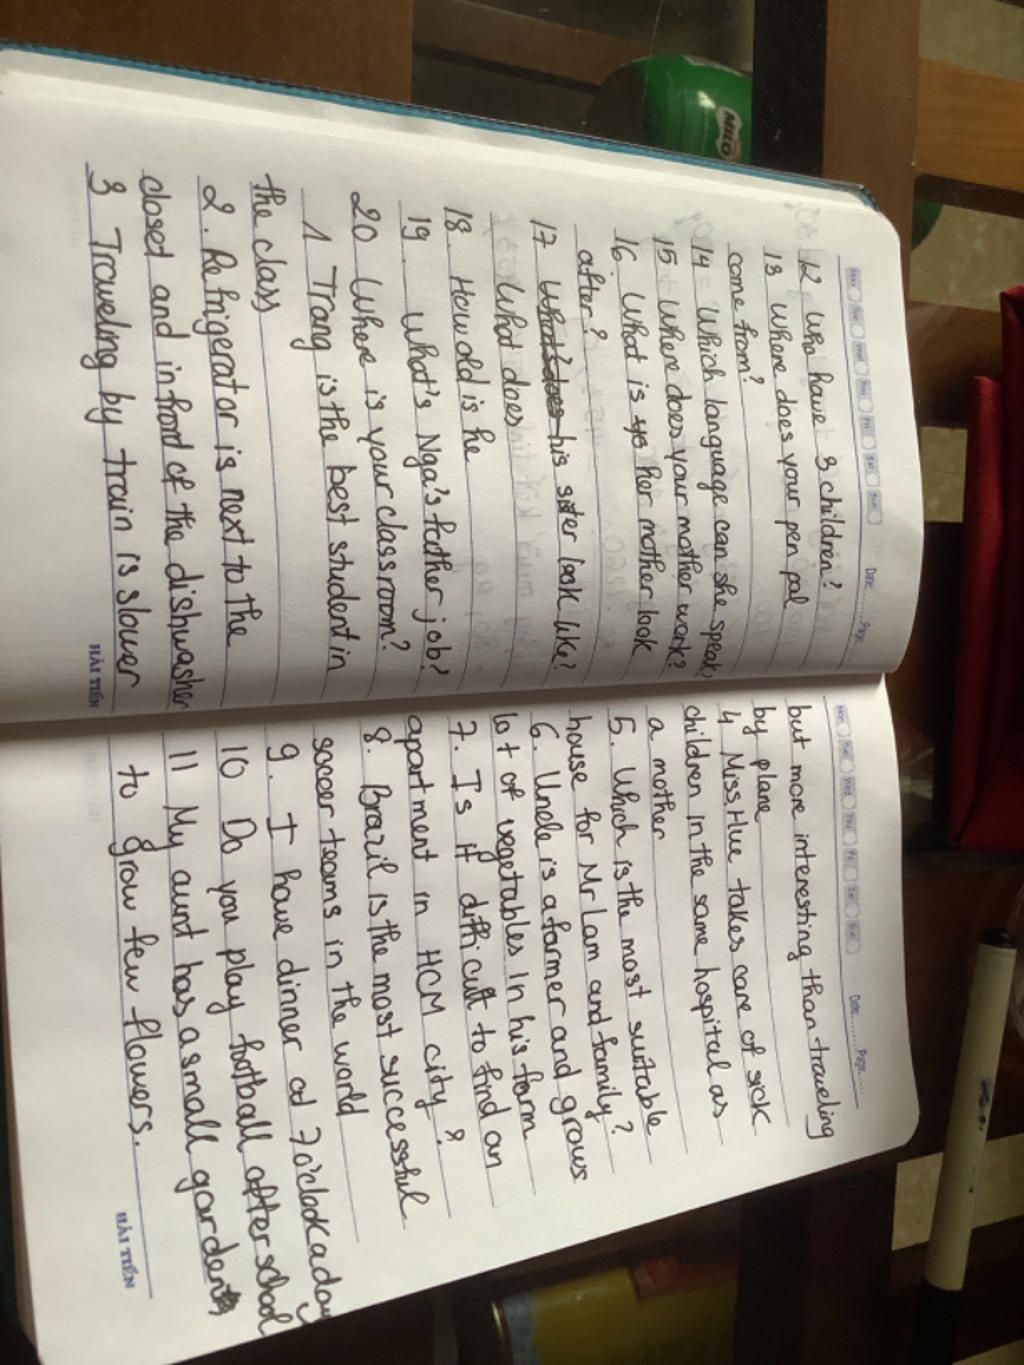 Mon Tue Wed Thu Fri Sat Sun Date: Page:
12 who have 3 children?
13 Where does your pen pal
come from?
14 Which language can she speak?
15 Where does your mother work?
16. What is her mother look
after?
17 his sister look like?
What does
18 How old is he
19 What's Nga's father job?
20 Where is your classroom?
1 Trang is the best student in
the class
2. Refrigerator is next to the
closet and in front of the dishwasher
3 Traveling by train is slower
HẢI TIẾN
Mon Tue Wed Thu Fri Sat Sun Date: Page:
but more interesting than traveling
by plane
4 Miss Hue takes care of sick
children in the same hospital as
a mother
5. Which is the most suitable
house for Mr Lam and family?
6. Uncle is a farmer and grows
lot of vegetables in his farm
7. Is it difficult to find an
apartment in HCM city?
8. Brazil is the most successful
soccer teams in the world
9. I have dinner at 7 o'clock a day
10 Do you play football after school
11 My aunt has a small garden
to grow few flowers.
HẢI TIẾN
MILO